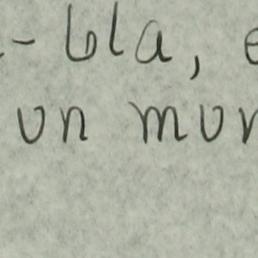 - bla,
un mur